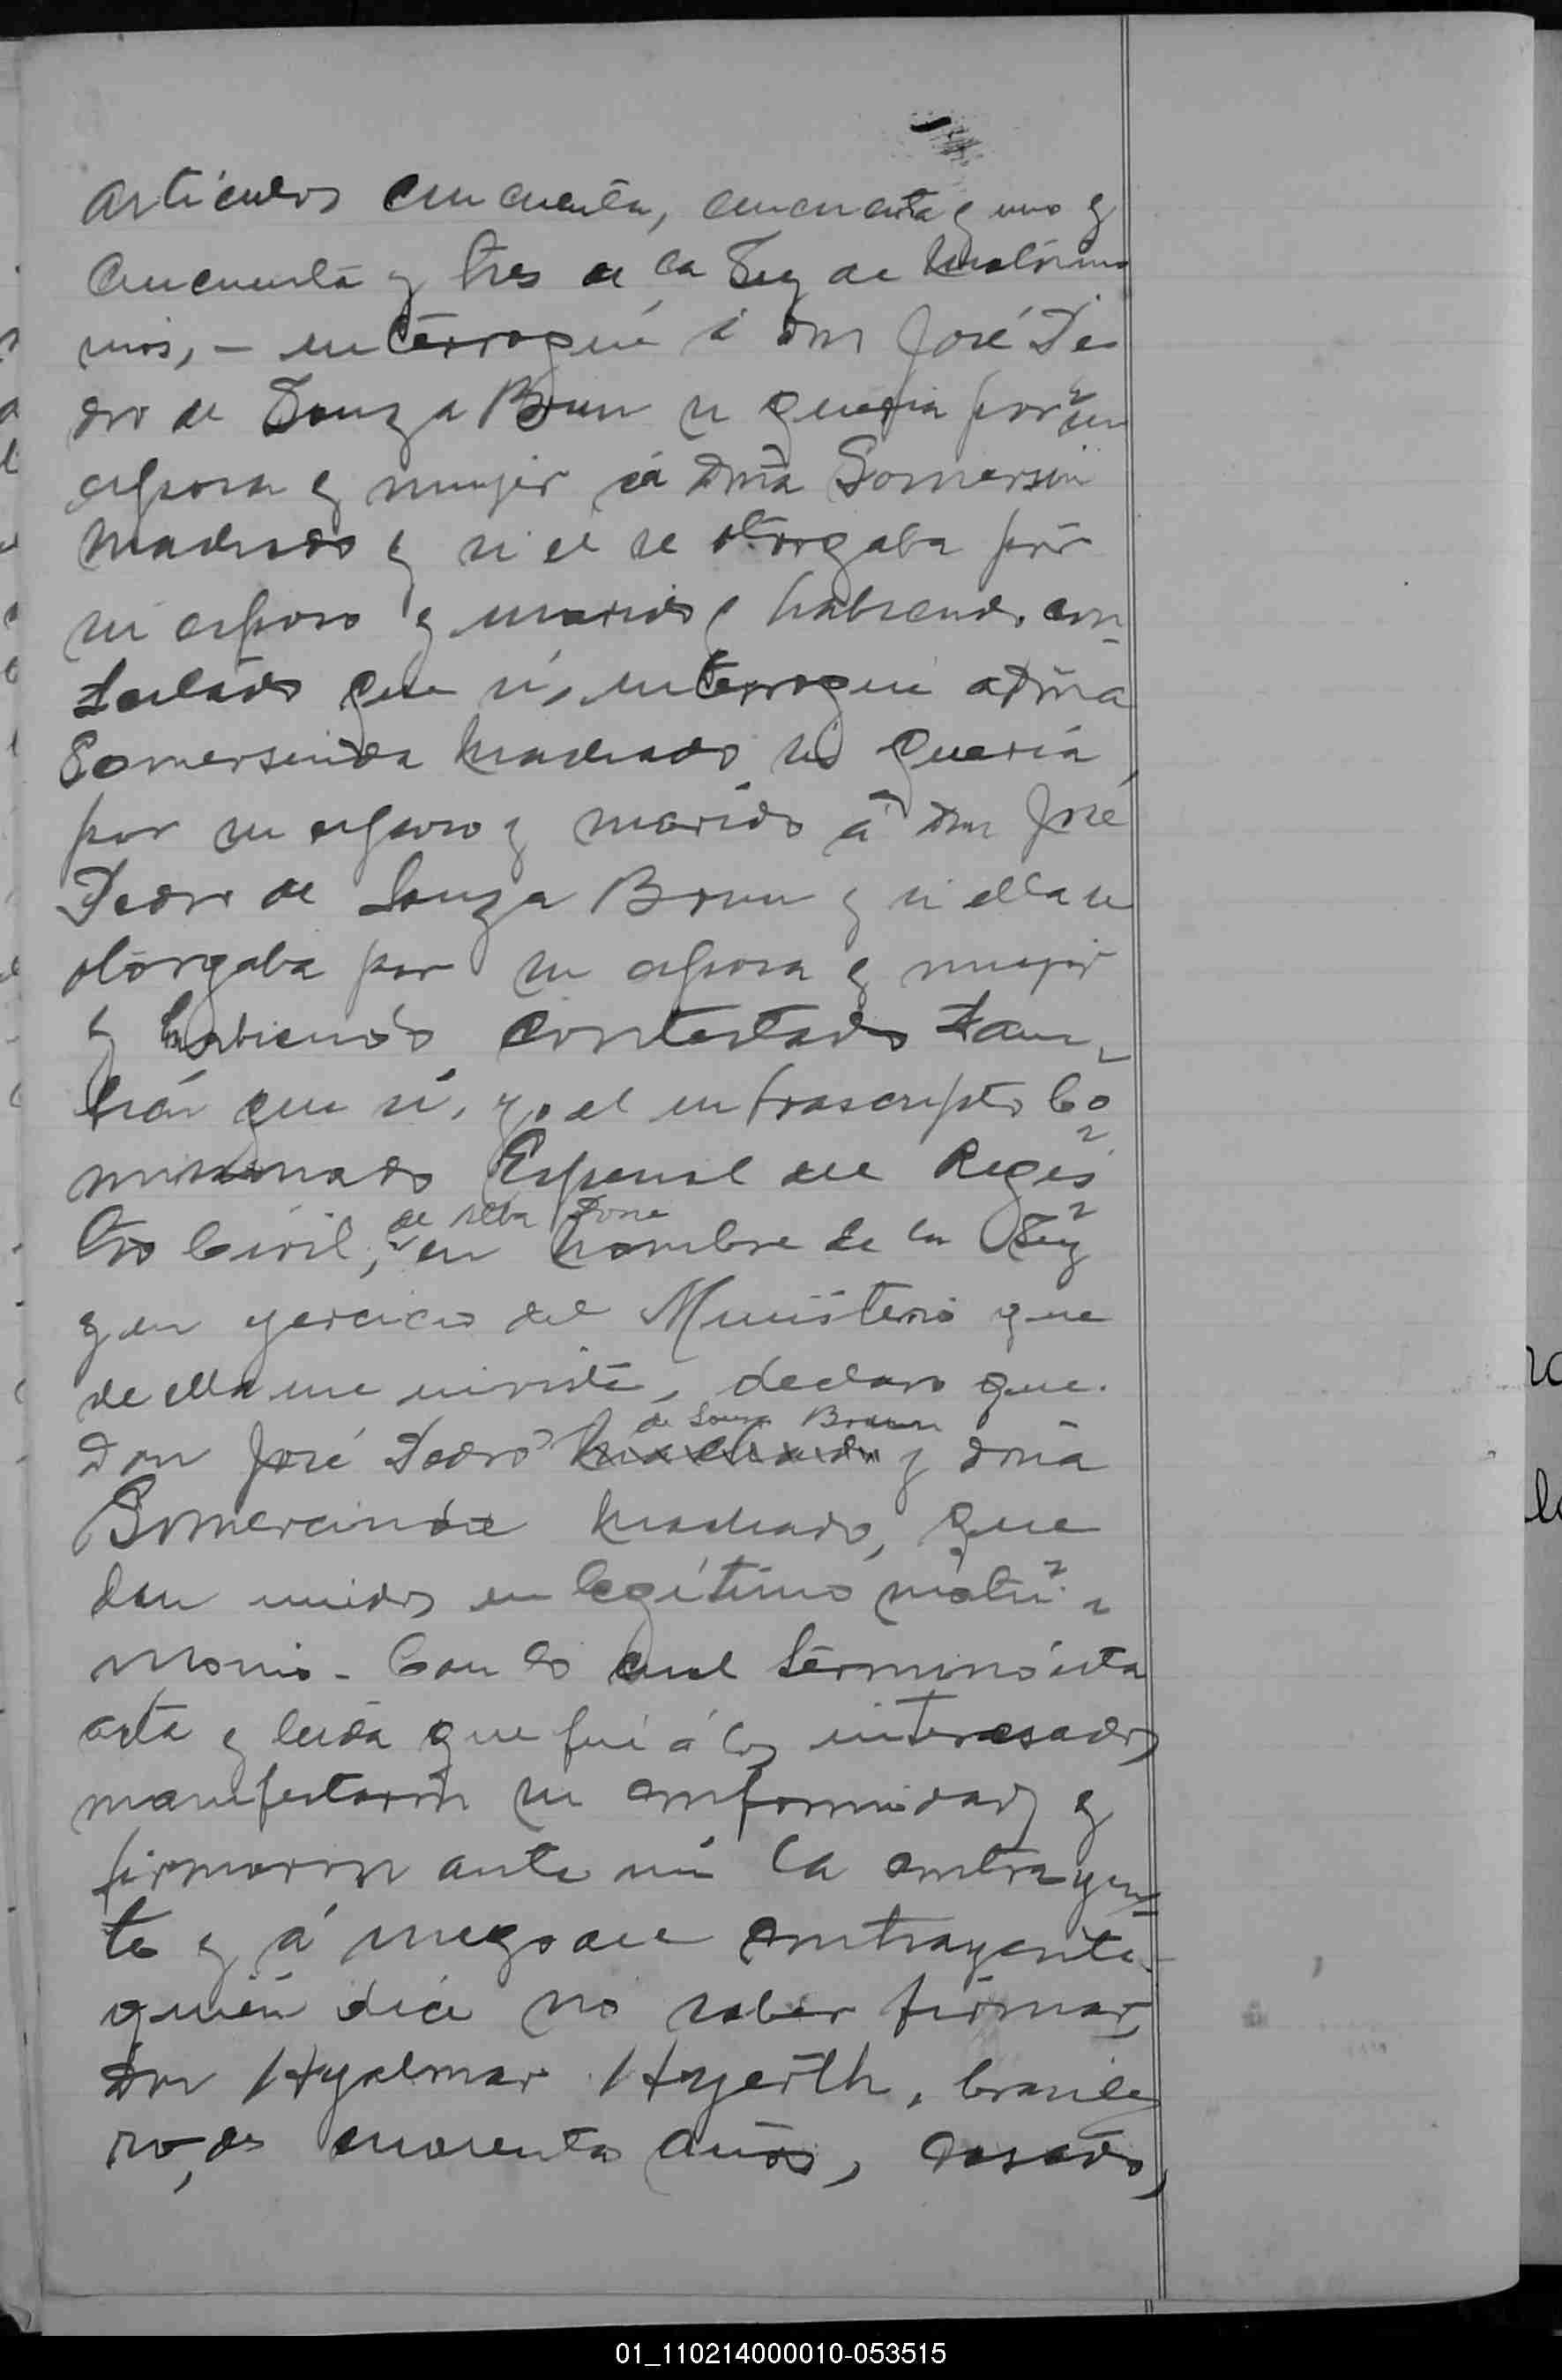 articulos cincuenta, cincuenta y uno y
cincuenta y tres de la Ley de Matrimo
nios, – interrogué á don José Pe
dro de Souza Brun si queria por su
esposa y mujer á doña Gomersin
Machado y si el se otorgaba por
su esposo y marido y habiendo con-
testado que si, interrogué a doña
Gomersinda Machado si queria
por su esposo y marido á don José
Pedro de Souza Brun y si ella se
otorgaba por su esposa y mujer
y habiendo contestado tam-
bién que si, yo el infrascripto Co
misionado Especial del Regis
tro Civil, de esta Zona en nombre de la Ley
y en ejercicio del Ministerio que
de ella me inviste, declaro que
Don José Pedro Machado de Souza Braun y doña
Gomercinda Machado, que
dan unidos en legítimo matri
monio. Con lo cual terminó esta
acta y leida que fué á los interesados
manifestaron su conformidad y
firmaron ante mi la contrayen
te y á ruego del contrayente
quién dice no saber firmar,
don Hyalmar Hyerth, brasile
ro, de cuarenta años, casado,
01_110214000010-053515